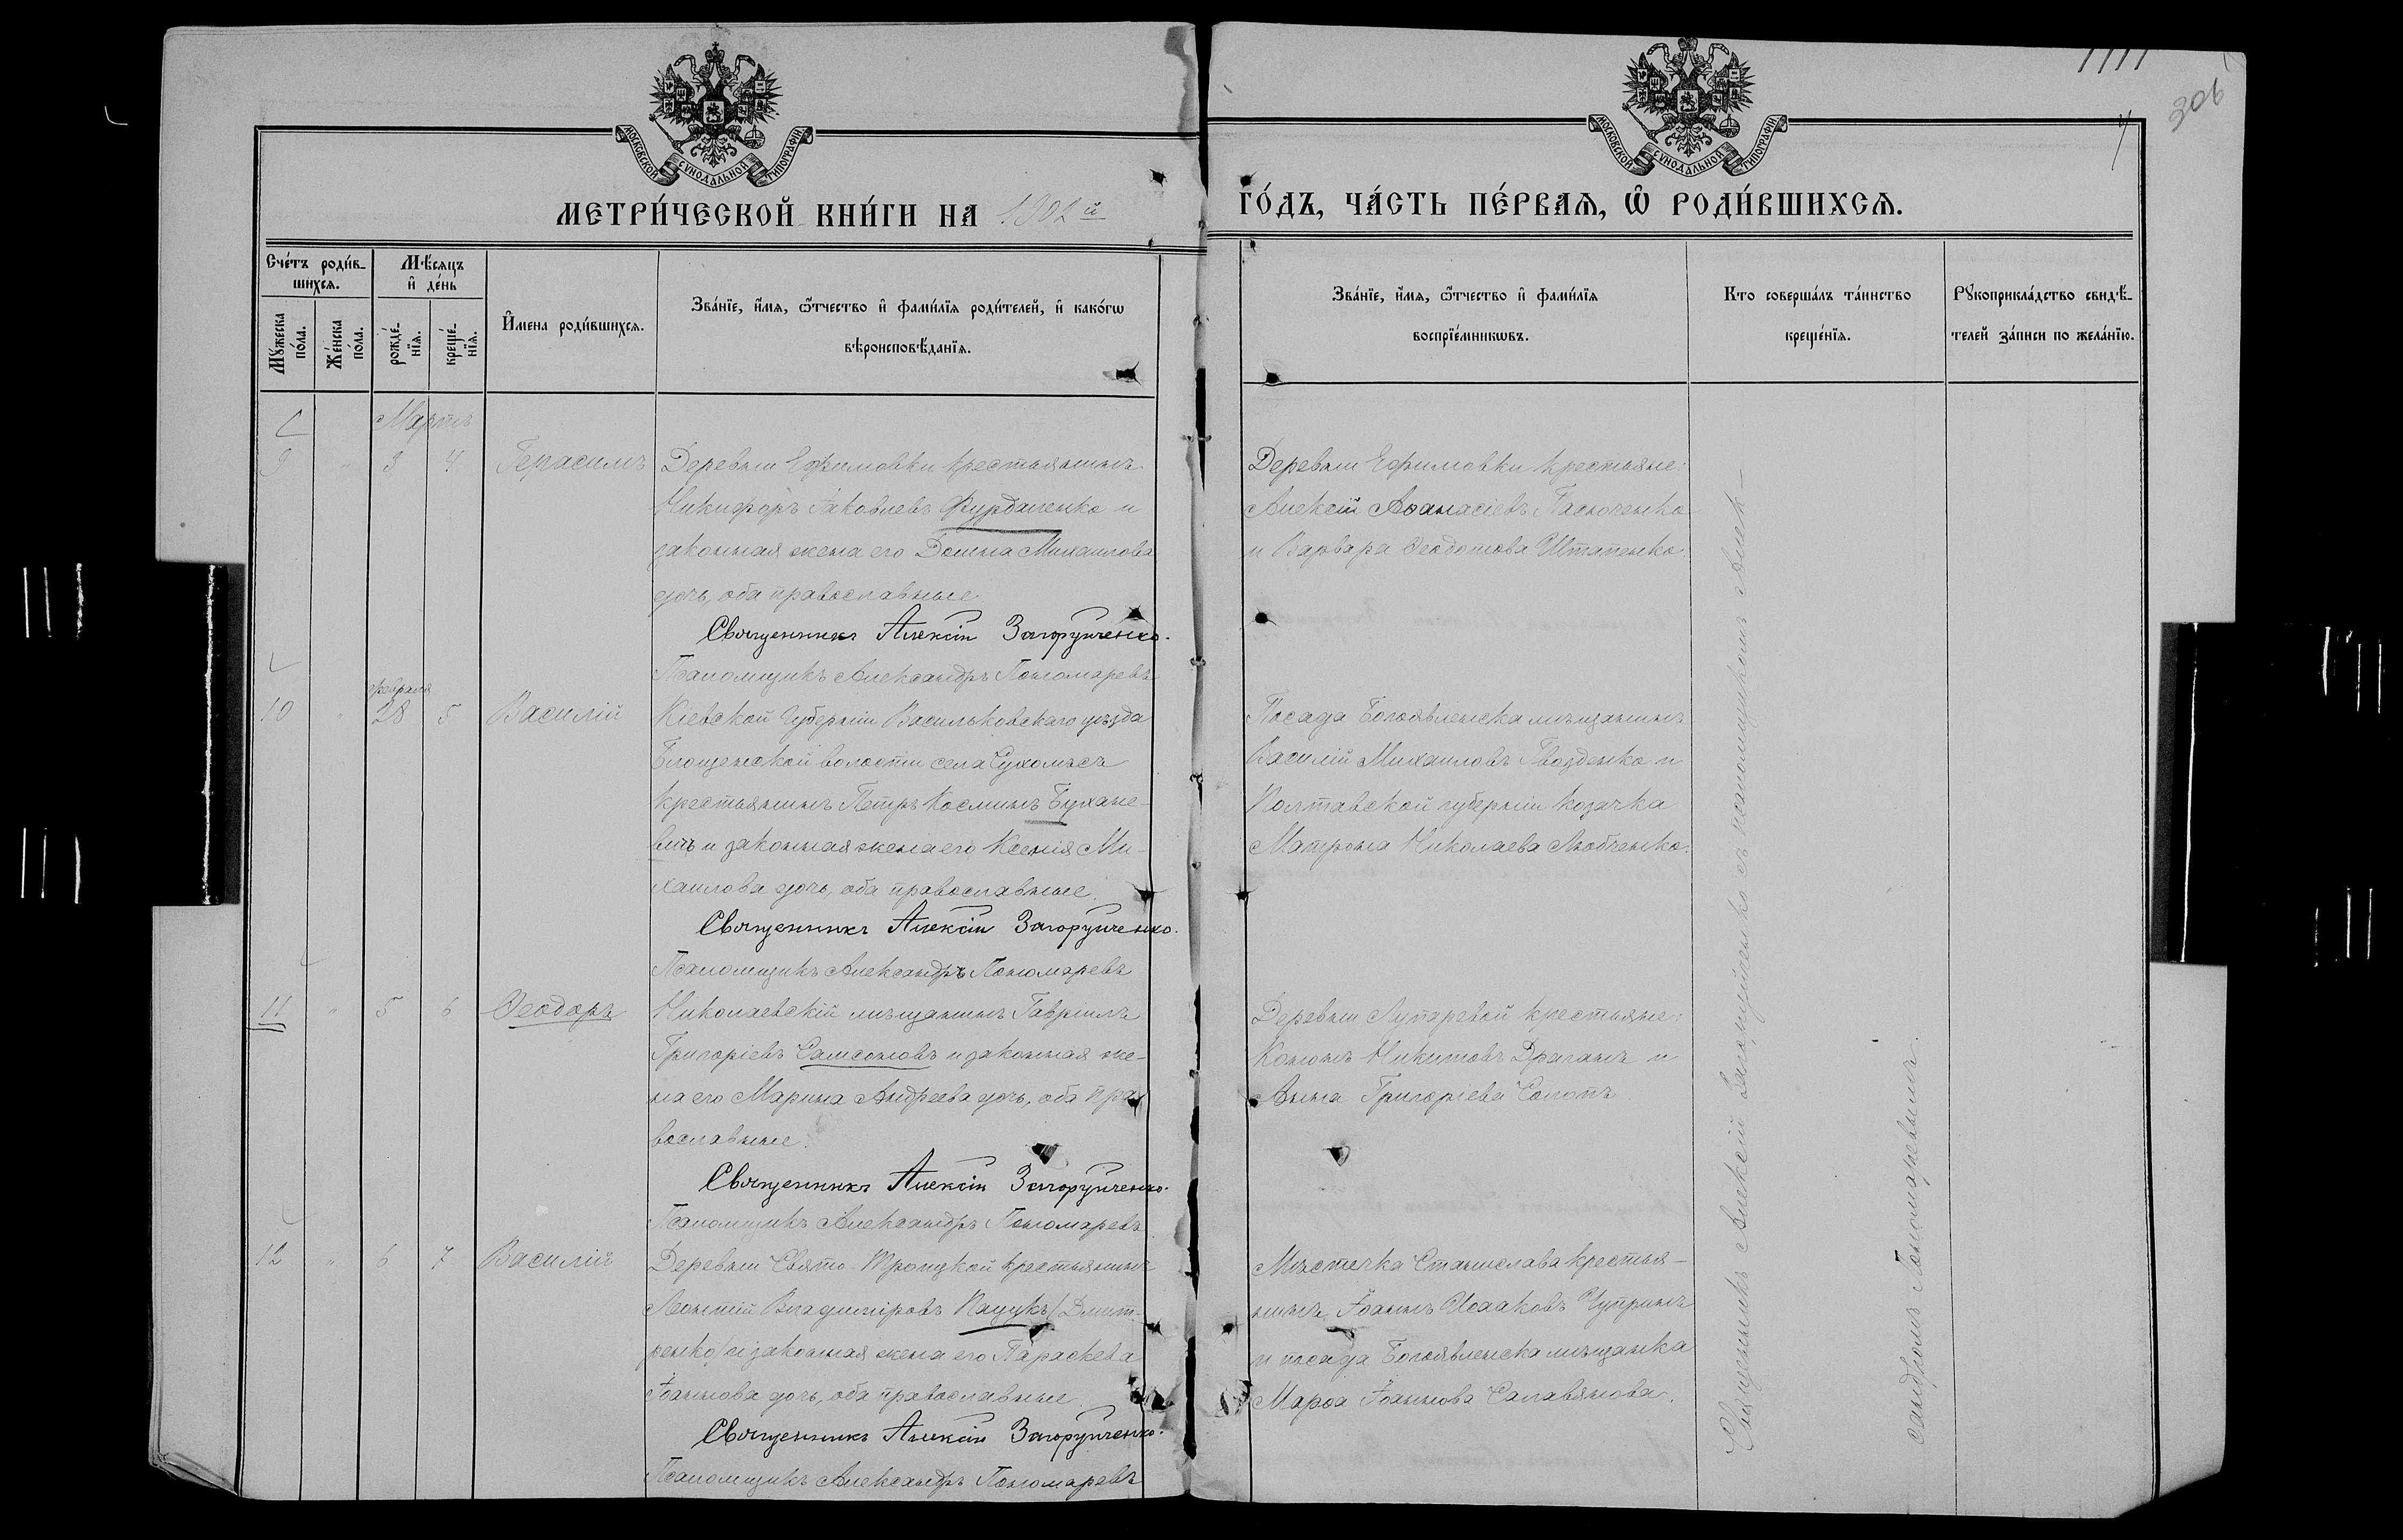 306
МОСКОВСКОЙ СУНОДАЛЬНОЙ ТИПОГРАФІИ
МОСКОВСКОЙ СУНОДАЛЬНОЙ ТИПОГРАФІИ
МЕТРИ́ЧЕСКОЙ КНИ́ГИ НА 1902 й
ГО́ДЪ, ЧА́СТЬ ПЕ́РВАЯ, Ѡ РОДИ́ВШИХСЯ.
Сче́тъ роди́в-
шихся.
Му́жеска по́ла.
Же́нска по́ла.
Мѣ́сяцъ
и҆ де́нь
рожде́-
нїя.
креще́-
нїя.
И҆мена роди́вшихся.
Зва́нїе, и҆́мя, ѻ҆́тчество и҆ фами́лїя роди́телей, и҆ како́гѡ
вѣроисповѣ́данїя.
Зва́нїе, и҆́мя, ѻ҆́тчество и҆ фами́лїя
воспрїе́мникѡвъ.
Кто соверша́лъ та́инство
креще́нїя.
Рꙋкоприкла́дство свидѣ́-
телей за́писи по жела́нїю.
Мартъ
9 " 3 4 Герасимъ
Деревни Ефимовки крестьянинъ
Никифоръ Іаковлевъ Фурдаленко и
законная жена его Домна Михаилова
дочь, оба православные
Священникъ Алексій Загоруйченко.
Псаломщикъ Александръ Пономаревъ
Деревни Ефимовки крестьяне:
Алексій Аѳанасіевъ
и Варвара Ѳеодотова
февраля
10 " 28 5 Василій
Кіевской Губерніи Васильковскаго уѣзда
волости села Сухолѣсъ
крестьянинъ Петръ Косминъ Бухане-
вичъ и законная жена его Ксенія Ми-
хаилова дочь, оба православные.
Священникъ Алексій Загоруйченко.
Псаломщикъ Александръ Пономаревъ
Посада Богоявленска мѣщанинъ
Василій Михаиловъ Гвозденко и
Полтавской губерніи козачка
Матрона Николаева Любченко.
11 " 5 6 Ѳеодоръ
Николаевскій мѣщанинъ Гавріилъ
Григоріевъ Самсоновъ и законная же-
на его Марина Андреева дочь, оба пра-
вославные.
Священникъ Алексій Загоруйченко.
Псаломщикъ Александръ Пономаревъ
Деревни Лупаревой крестьяне:
Кононъ Никитовъ Драганъ и
Анна Григоріева
12 " 6 7 Василій
Деревни Свято-Троицкой крестьянинъ
Леонтій Владиміровъ Пацукъ /Дмит-
ренко/ и законная жена его Параскева
Іоаннова дочь, оба православные.
Священникъ Алексій Загоруйченко.
Псаломщикъ Александръ Пономаревъ
Мѣстечка Станислава крестья-
нинъ Іоаннъ Исааковъ Чупринъ
и посада Богоявленска мѣщанка
Марѳа Іоаннова Салавянова.
Священникъ Алексій Загоруйченко съ псаломщикомъ Алек-
сандромъ Пономаревымъ.